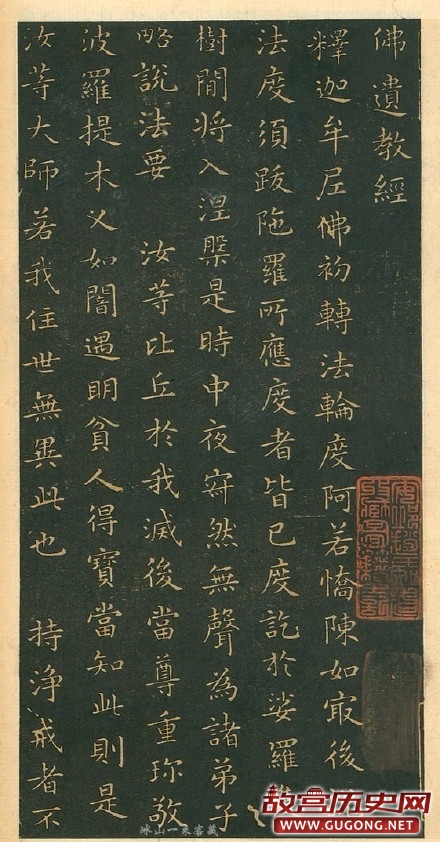 佛遺教經
釋迦牟尼佛初轉法輪度阿若憍陳如㝡後
法度須跋陁羅所應度者皆已度訖於娑羅
樹間將入涅槃是時中夜寂然無聲為諸弟子
略說法要　汝等比丘於我滅後當尊重珎敬
波羅提木叉如闇遇明貧人得寶當知此則是
汝等大師若我住世無異此也　持淨戒者不
故宫历史网
www.GUGONG.net